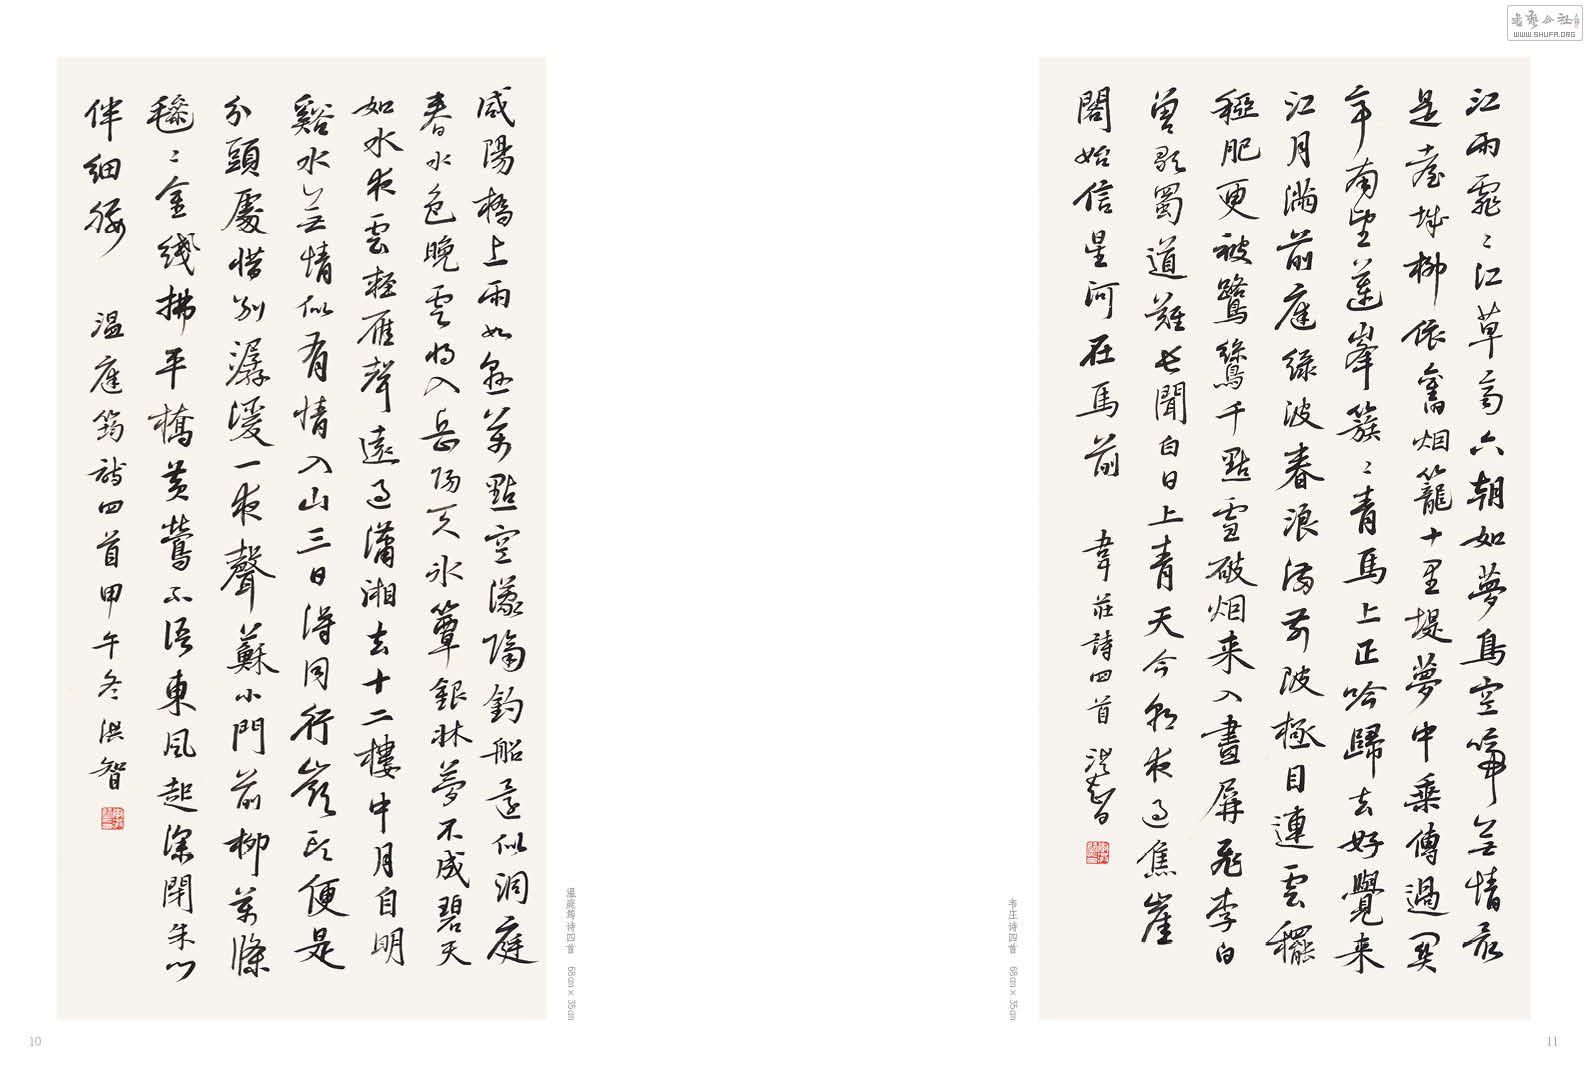 咸陽橋上雨如懸萬點空濛隔釣船還似洞庭
春水色晚雲將入岳陽天氷簟銀牀夢不成碧天
如水夜雲輕雁聲遠過瀟湘去十二樓中月自明
谿水無情似有情入山三日得同行嶺頭便是
分頭處惜別潺湲一夜聲蘇小門前柳萬條
毿〻金綫拂平橋黄鶯不語東風起深閉朱門
伴細腰 温庭筠詩四首甲午冬洪智
温庭筠诗四首 68cm×35cm
10
江雨霏〻江草齊六朝如夢鳥空啼無情最
是臺城柳依舊烟籠十里堤夢中乘傳過關
亭南望蓮峯簇〻青馬上正吟歸去好覺来
江月滿前庭緑波春浪滿前陂極目連雲穲
稏肥更被鷺鷥千點雪破烟来入畫屏飛李白
曾歌蜀道難長聞白日上青天今朝夜過焦崖
閣始信星河在馬前 韋莊詩四首 洪智
韦庄诗四首 68cm×35cm
11
书艺公社
WWW.SHUFA.ORG